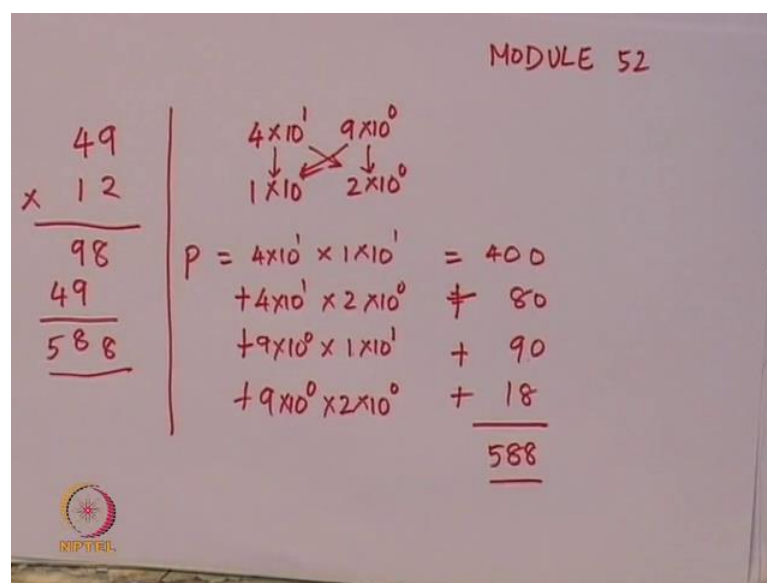 MODULE 52
49
× 12
98
49
588
4×10¹ 9×10⁰
1×10 2×10⁰
P = 4×10¹ × 1×10¹ = 400
+4×10¹ × 2×10⁰ + 80
+9×10⁰ × 1×10¹ + 90
+9×10⁰ × 2×10⁰ + 18
588
NPTEL